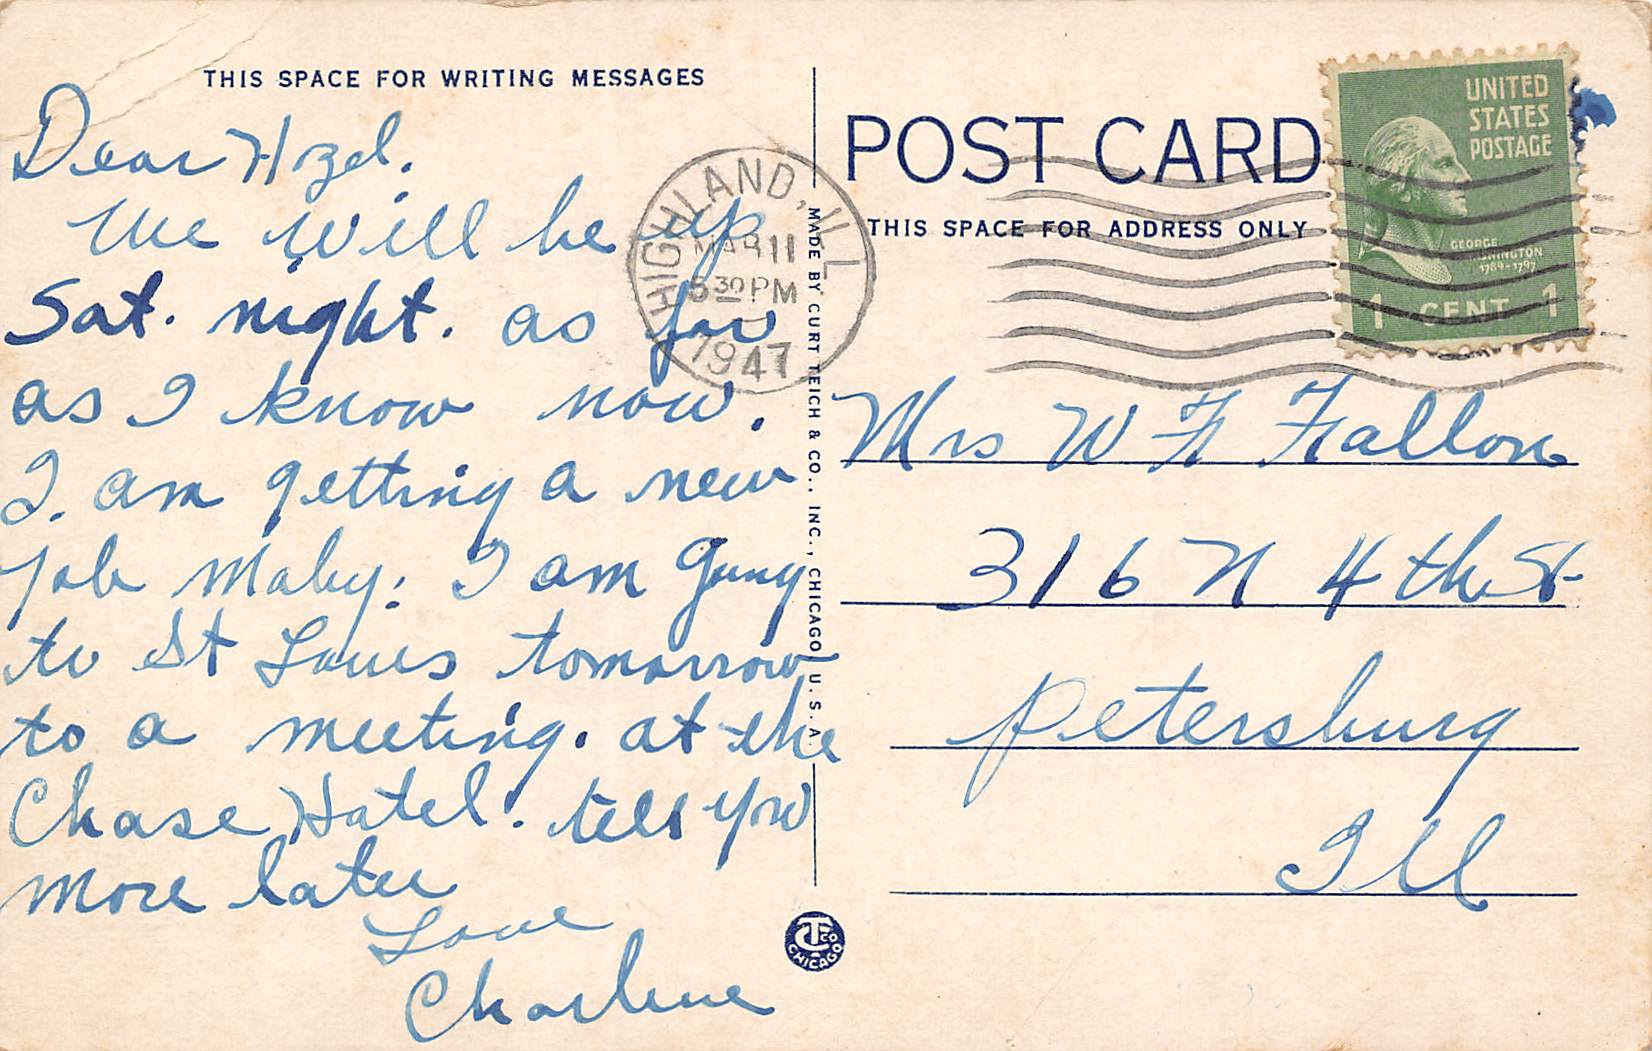 THIS SPACE FOR WRITING MESSAGES
Dear Hazel.
We will be up
Sat. night. as far
as I know now.
I. am getting a new
Job Maby. I am Going
to St Louis tomorrow
to a meeting. at the
Chase Hotel. tell you
more later
Love
Charlene
HIGHLAND, ILL
MAR 11
5 30 PM
1947
MADE BY CURT TEICH & CO., INC., CHICAGO, U.S.A.
CT CO
CHICAGO
POST CARD
THIS SPACE FOR ADDRESS ONLY
UNITED
STATES
POSTAGE
GEORGE
WASHINGTON
1789-1797
1 CENT 1
Mrs W F Fallon
316 N 4th St
Petersburg
Ill